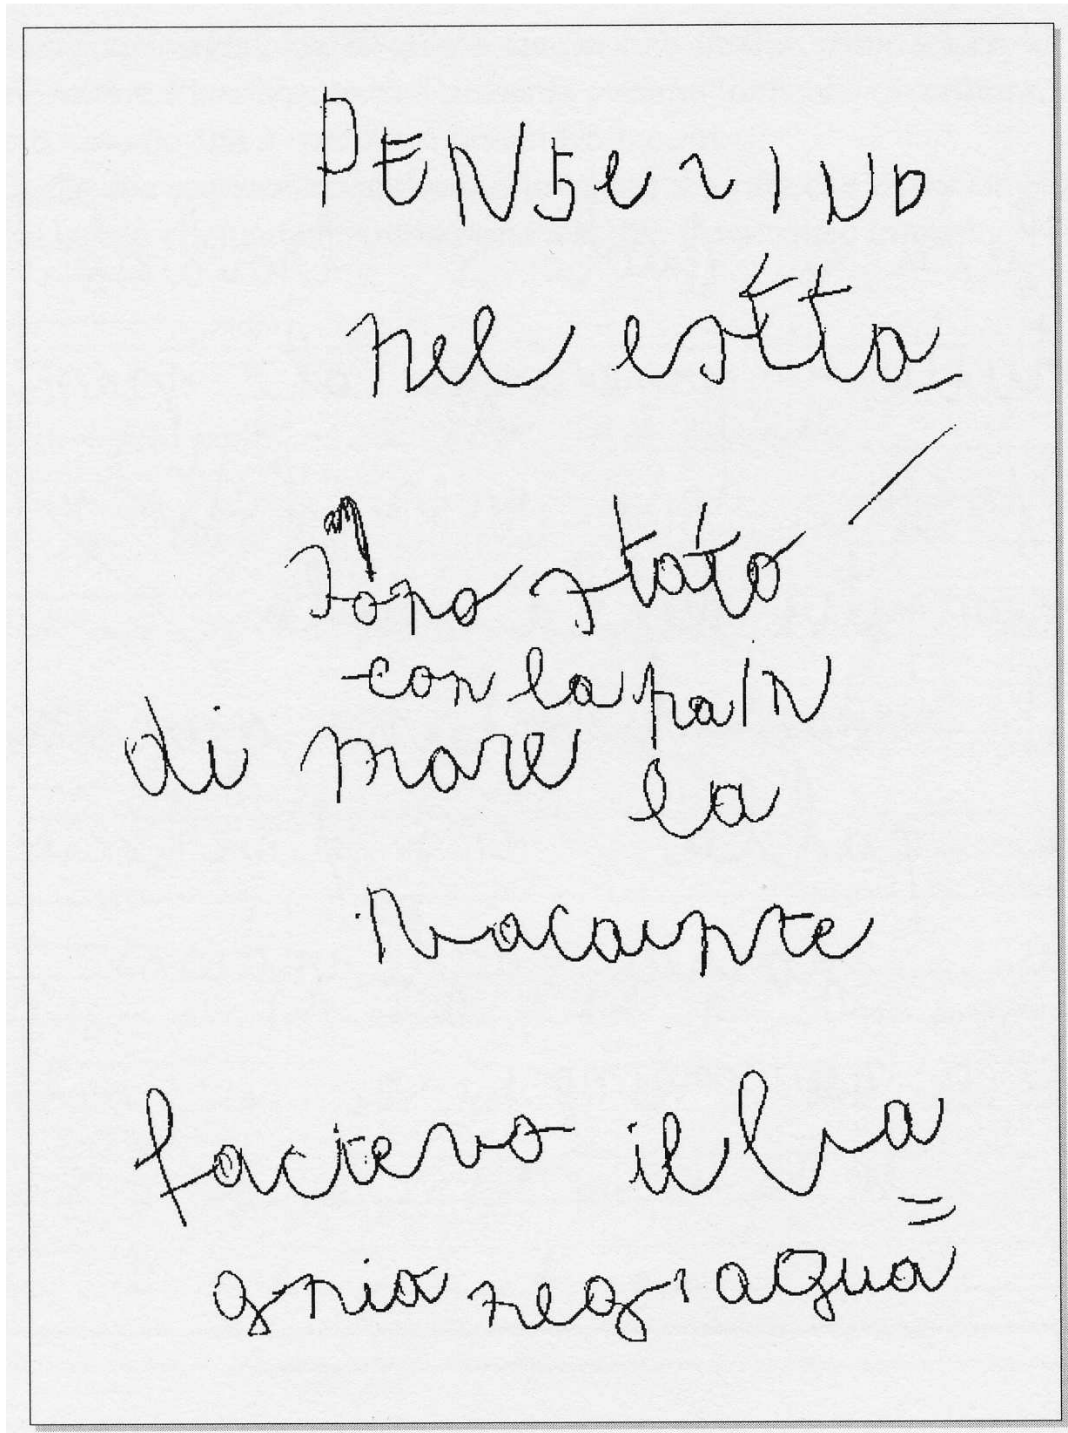 PENSerINO
nel estta
sono stato
con la pain
di mare la
vacainte
facievo il ba
gnia negi agua